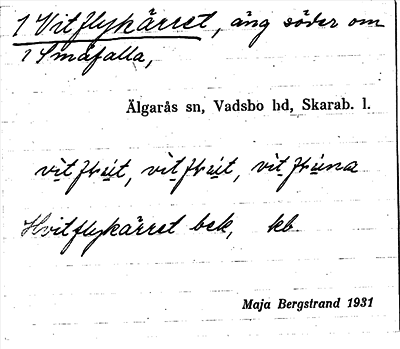 1 Vitflykärret, äng söder om
1 Småfalla,
Älgarås sn, Vadsbo hd, Skarab. l.
Hvitflykärret bek, kb
Maja Bergstrand 1931